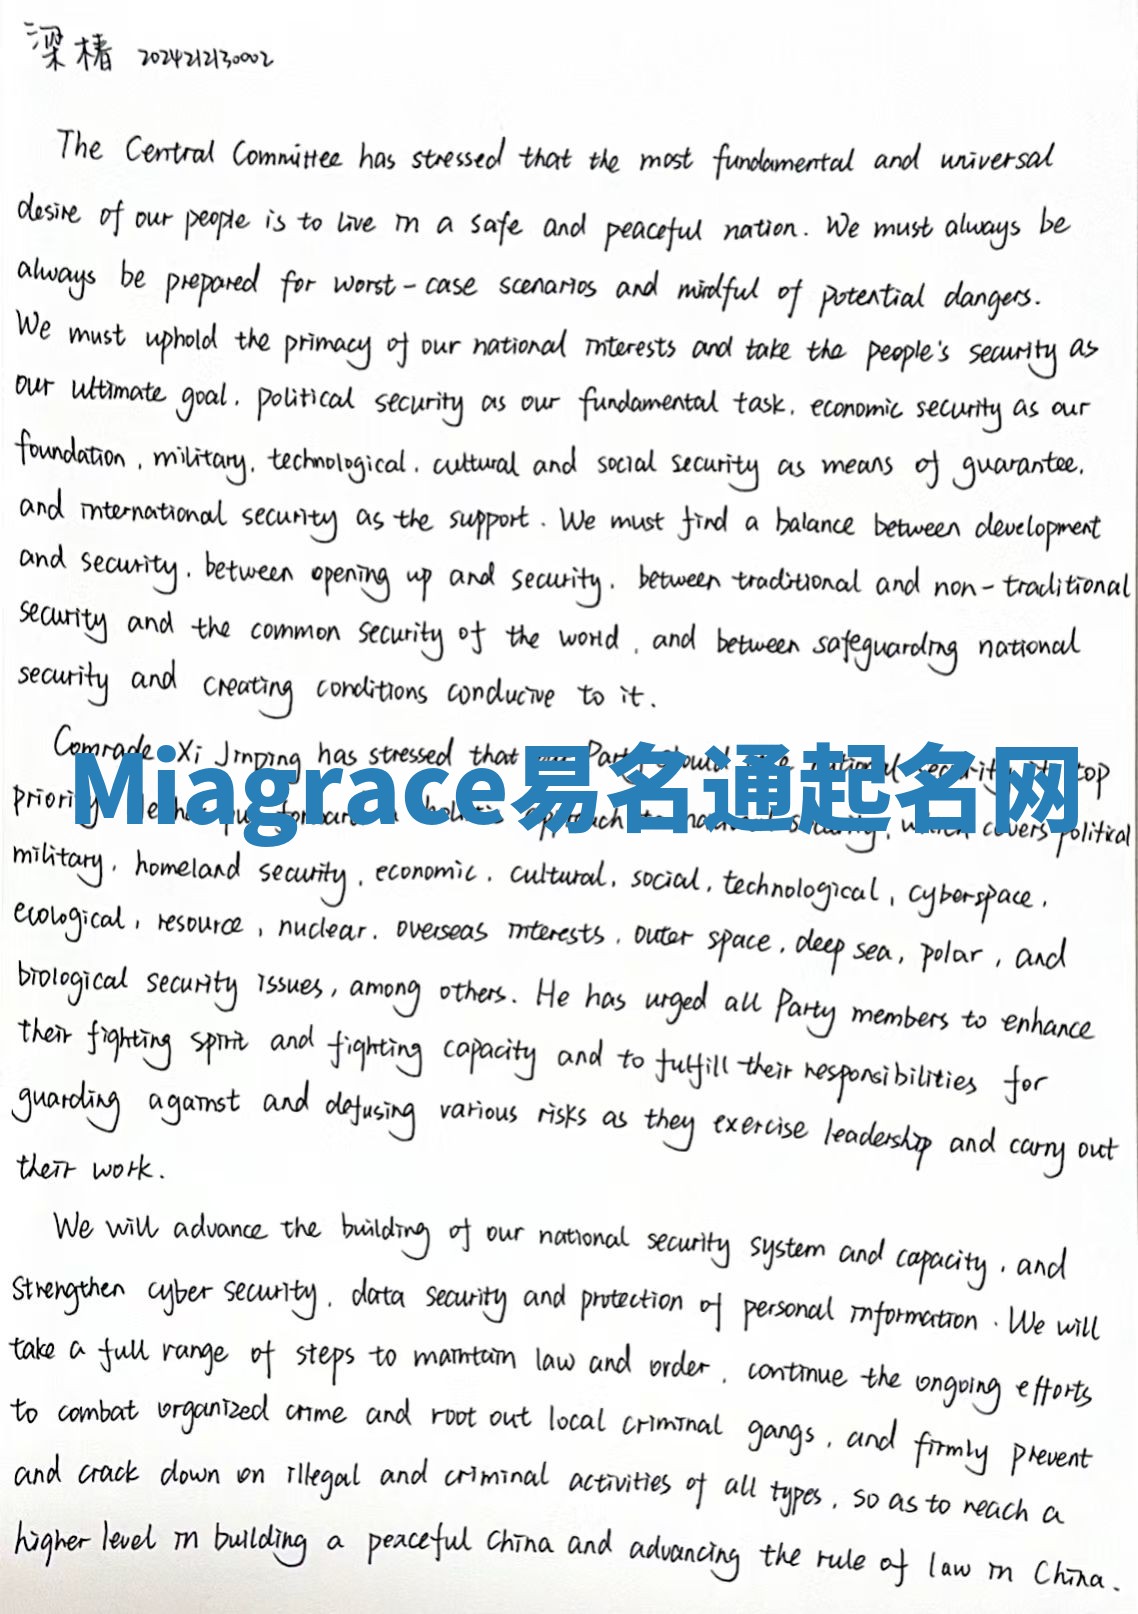 梁椿 2024212130002
The Central Committee has stressed that the most fundamental and universal
desire of our people is to live in a safe and peaceful nation. We must always be
always be prepared for worst-case scenarios and mindful of potential dangers.
We must uphold the primacy of our national interests and take the people's security as
our ultimate goal, political security as our fundamental task, economic security as our
foundation, military, technological, cultural and social security as means of guarantee,
and international security as the support. We must find a balance between development
and security, between opening up and security, between traditional and non-traditional
security and the common security of the world, and between safeguarding national
security and creating conditions conducive to it.
Comrade Xi Jinping has stressed that Party national security top
Miagrace易名通起名网
priority which covers political
military, homeland security, economic, cultural, social, technological, cyberspace,
ecological, resource, nuclear, overseas interests, outer space, deep sea, polar, and
biological security issues, among others. He has urged all Party members to enhance
their fighting spirit and fighting capacity and to fulfill their responsibilities for
guarding against and defusing various risks as they exercise leadership and carry out
their work.
We will advance the building of our national security system and capacity, and
strengthen cyber security, data security and protection of personal information. We will
take a full range of steps to maintain law and order, continue the ongoing efforts
to combat organized crime and root out local criminal gangs, and firmly prevent
and crack down on illegal and criminal activities of all types, so as to reach a
higher level in building a peaceful China and advancing the rule of law in China.